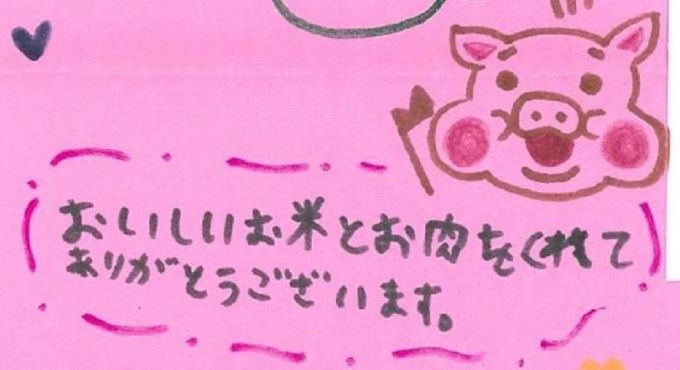 おいしいお米とお肉をくれて
ありがとうございます。